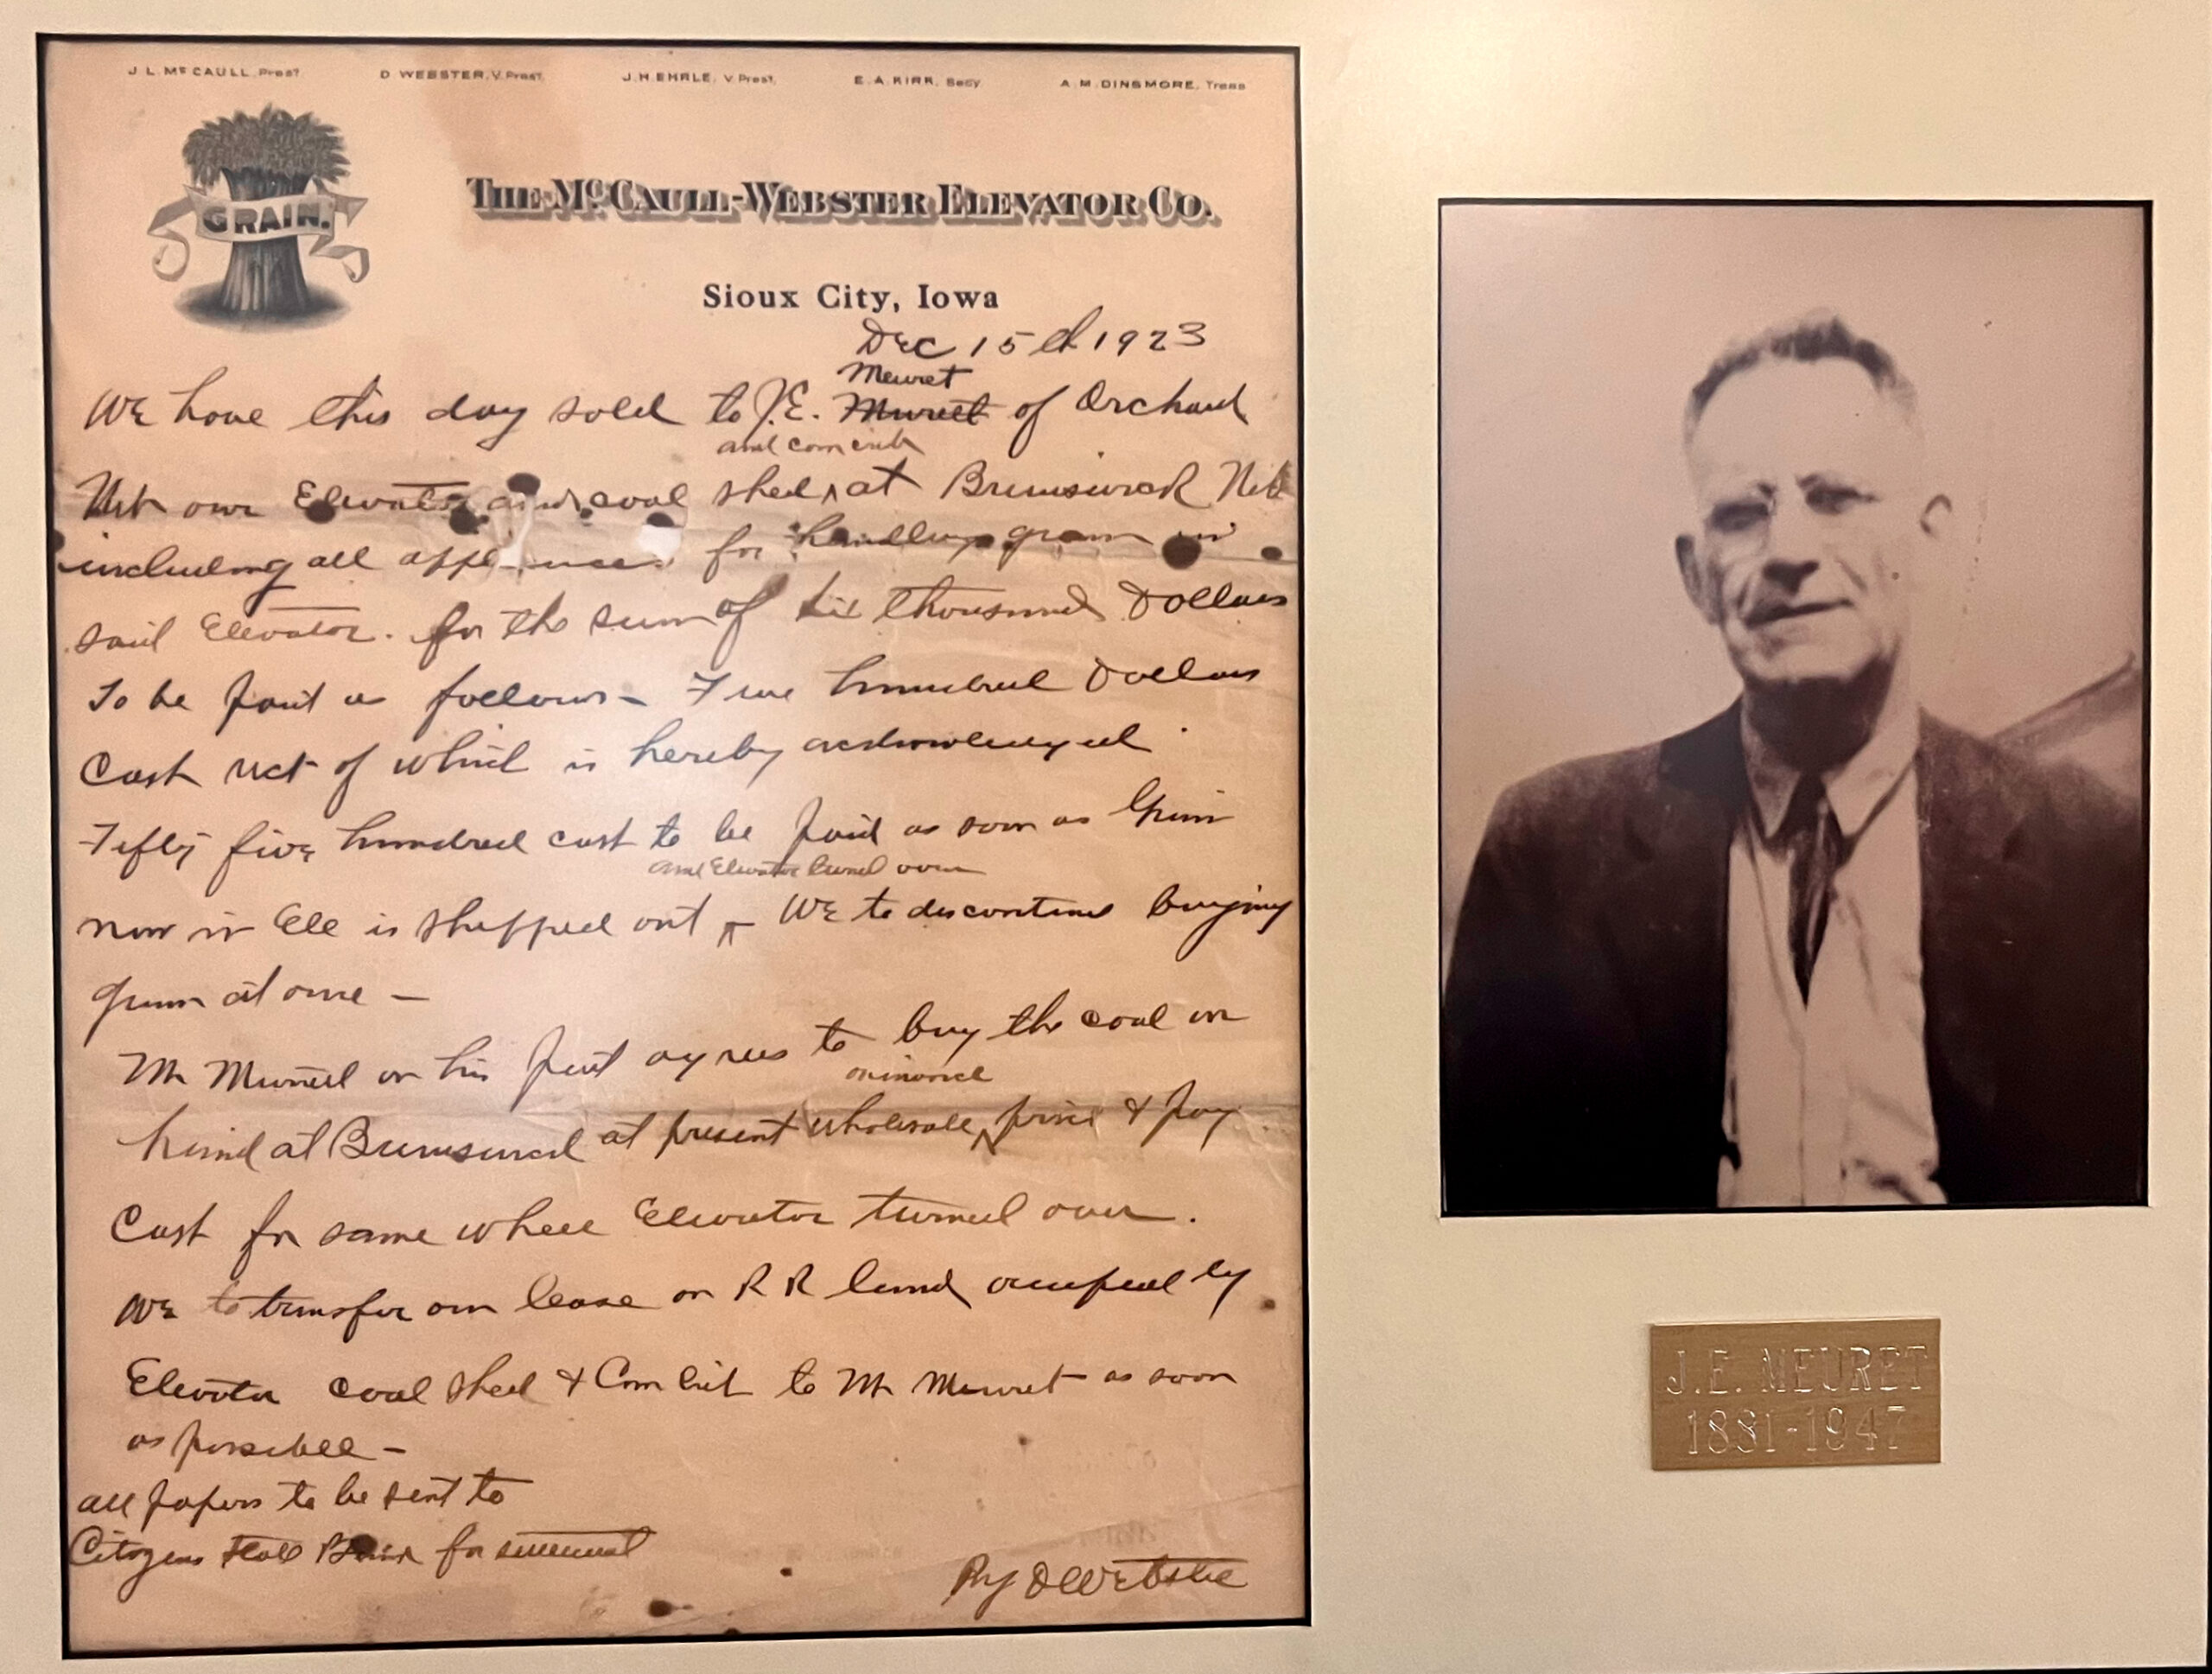 J. L. McCAULL, Prest. D. WEBSTER, V. Prest. J. H. EHRLE, V. Prest. E. A. KIRK, Secy. A. M. DINSMORE, Treas.
GRAIN.
THE McCAULL-WEBSTER ELEVATOR CO.
Sioux City, Iowa
Dec 15th 1923
Meuret
We have this day sold to J.E. Muret of Orchard
and corn crib
Neb our Elevator and coal shed at Brunswick Neb
including all appliances for handling grain in
said Elevator. for the sum of Six thousand Dollars
To be paid as follows - Five hundred Dollars
Cash rect of which is hereby acknowledged
Fifty five hundred cash to be paid as soon as Grain
and Elevator turned over
now in Ele is shipped out We to discontinue buying
grain at once -
Mr Meuret on his part agrees to buy the coal on
on invoice
hand at Brunswick at present wholesale price & pay
Cash for same when Elevator turned over.
We to transfer our lease on R R land occupied by
Elevator coal shed & Corn Crib to Mr Meuret as soon
as possible -
all papers to be sent to
Citizens State Bank for
By D Webster
J.E. MEURET
1881-1947